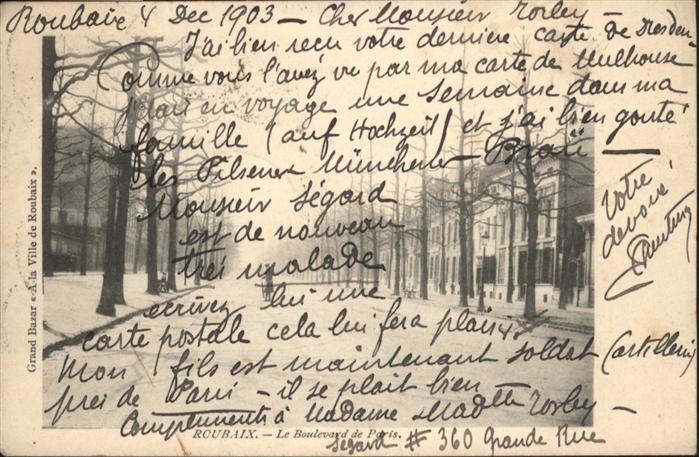 Roubaix 4 Dec 1903 — Cher Monsieur Torley —
J'ai bien reçu votre dernière carte de Dresden
Comme vous l'avez vu par ma carte de Mulhouse
j'étais en voyage une semaine dans ma
famille (auf Hochzeit) et j'ai bien gouté
les Pilsener Münchener — Braü —
Monsieur Ségard
est de nouveau
très malade
écrivez lui une
carte postale cela lui fera plaisir
Mon fils est maintenant soldat (artillerie)
près de Paris — il se plait bien —
Compliments à Madame Torley —
Votre
dévoué
Grand Bazar « A la Ville de Roubaix ».
ROUBAIX. — Le Boulevard de Paris.
Ségard # 360 Grande Rue